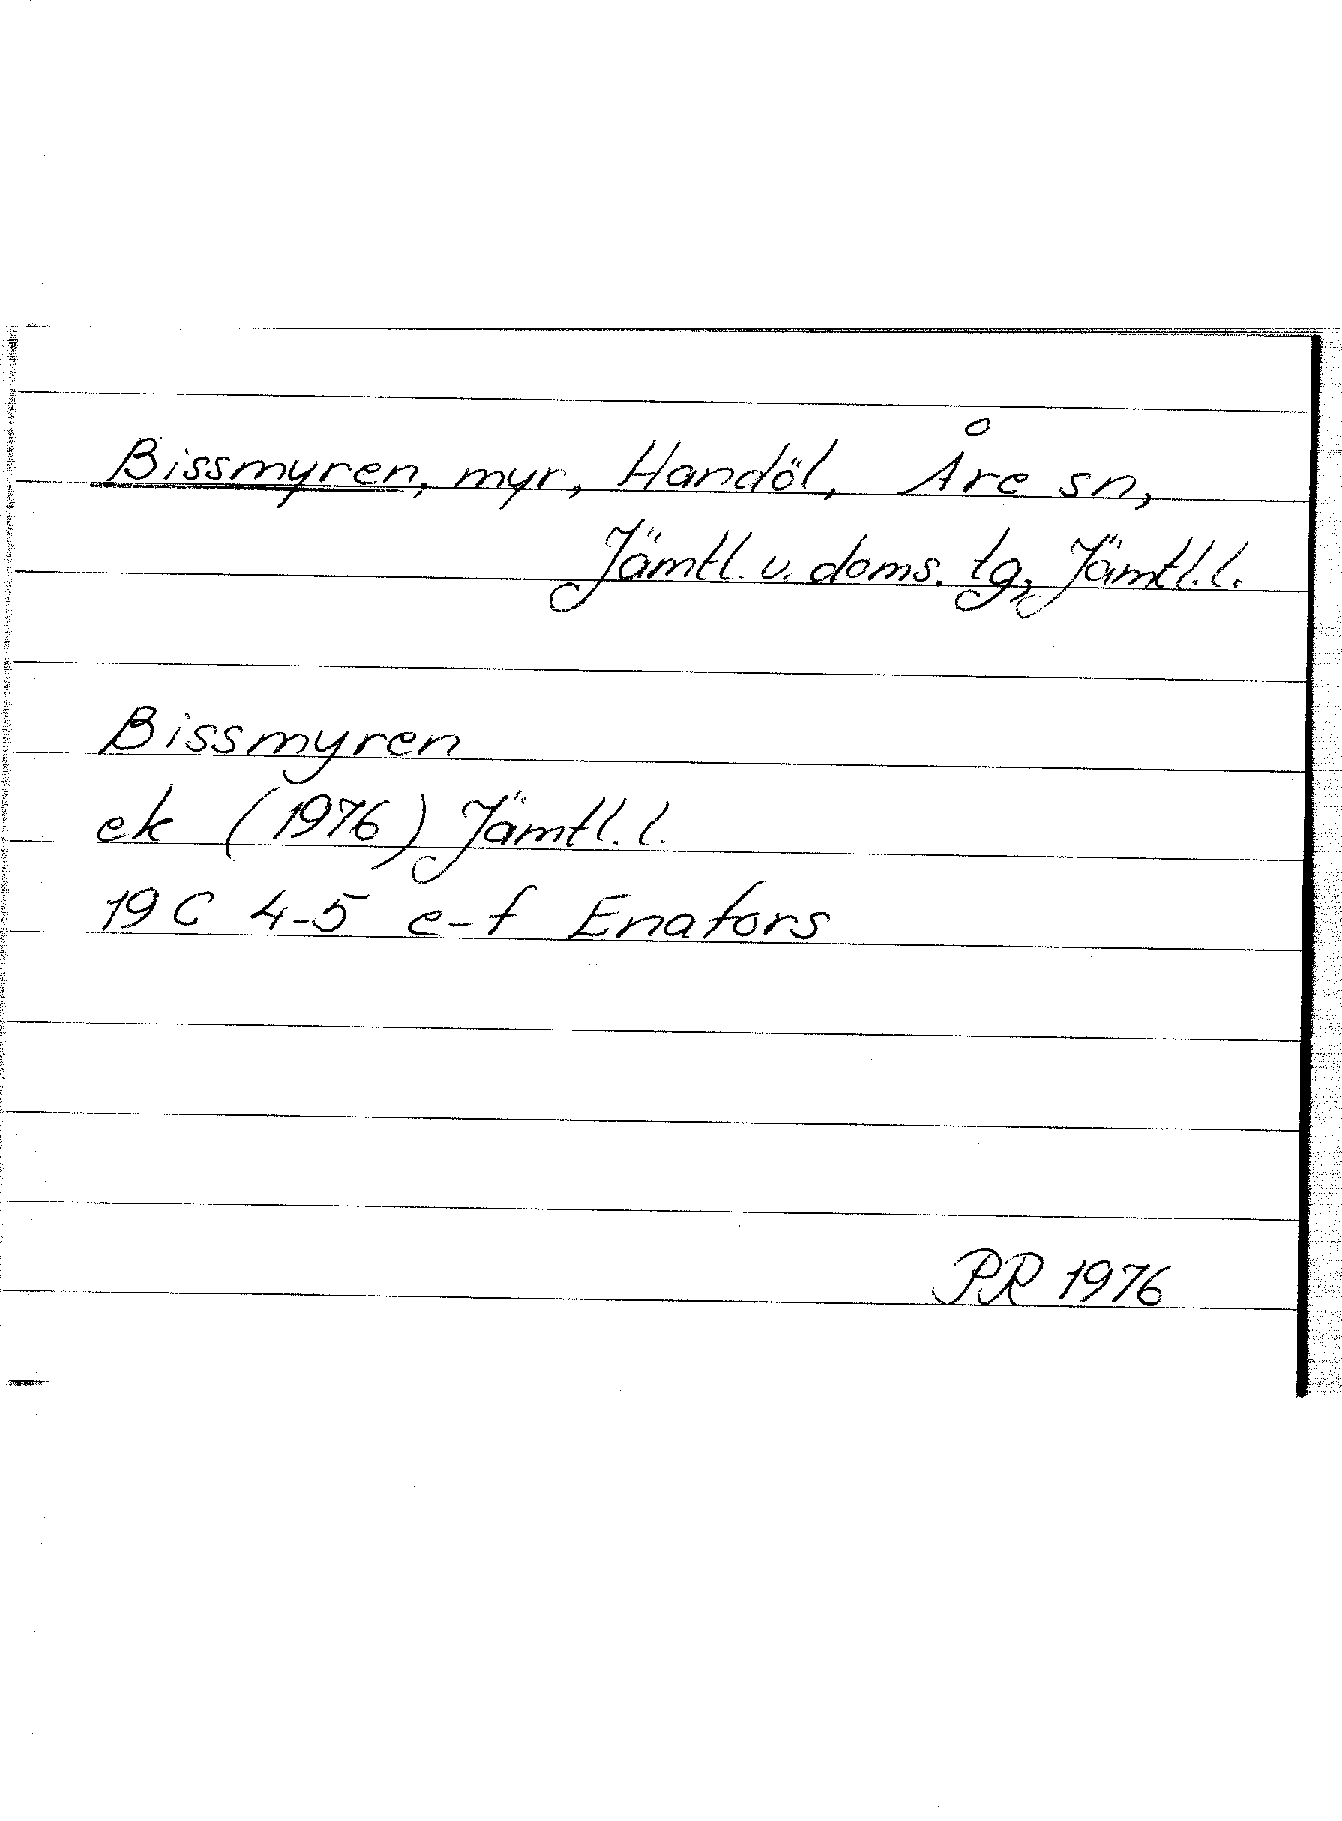 Bissmyren, myr, Handöl, Åre sn,
Jämtl. v. doms. tg, Jämtl. l.
Bissmyren
ek (1976) Jämtl. l.
19 C 4-5 e-f Enafors
PR 1976